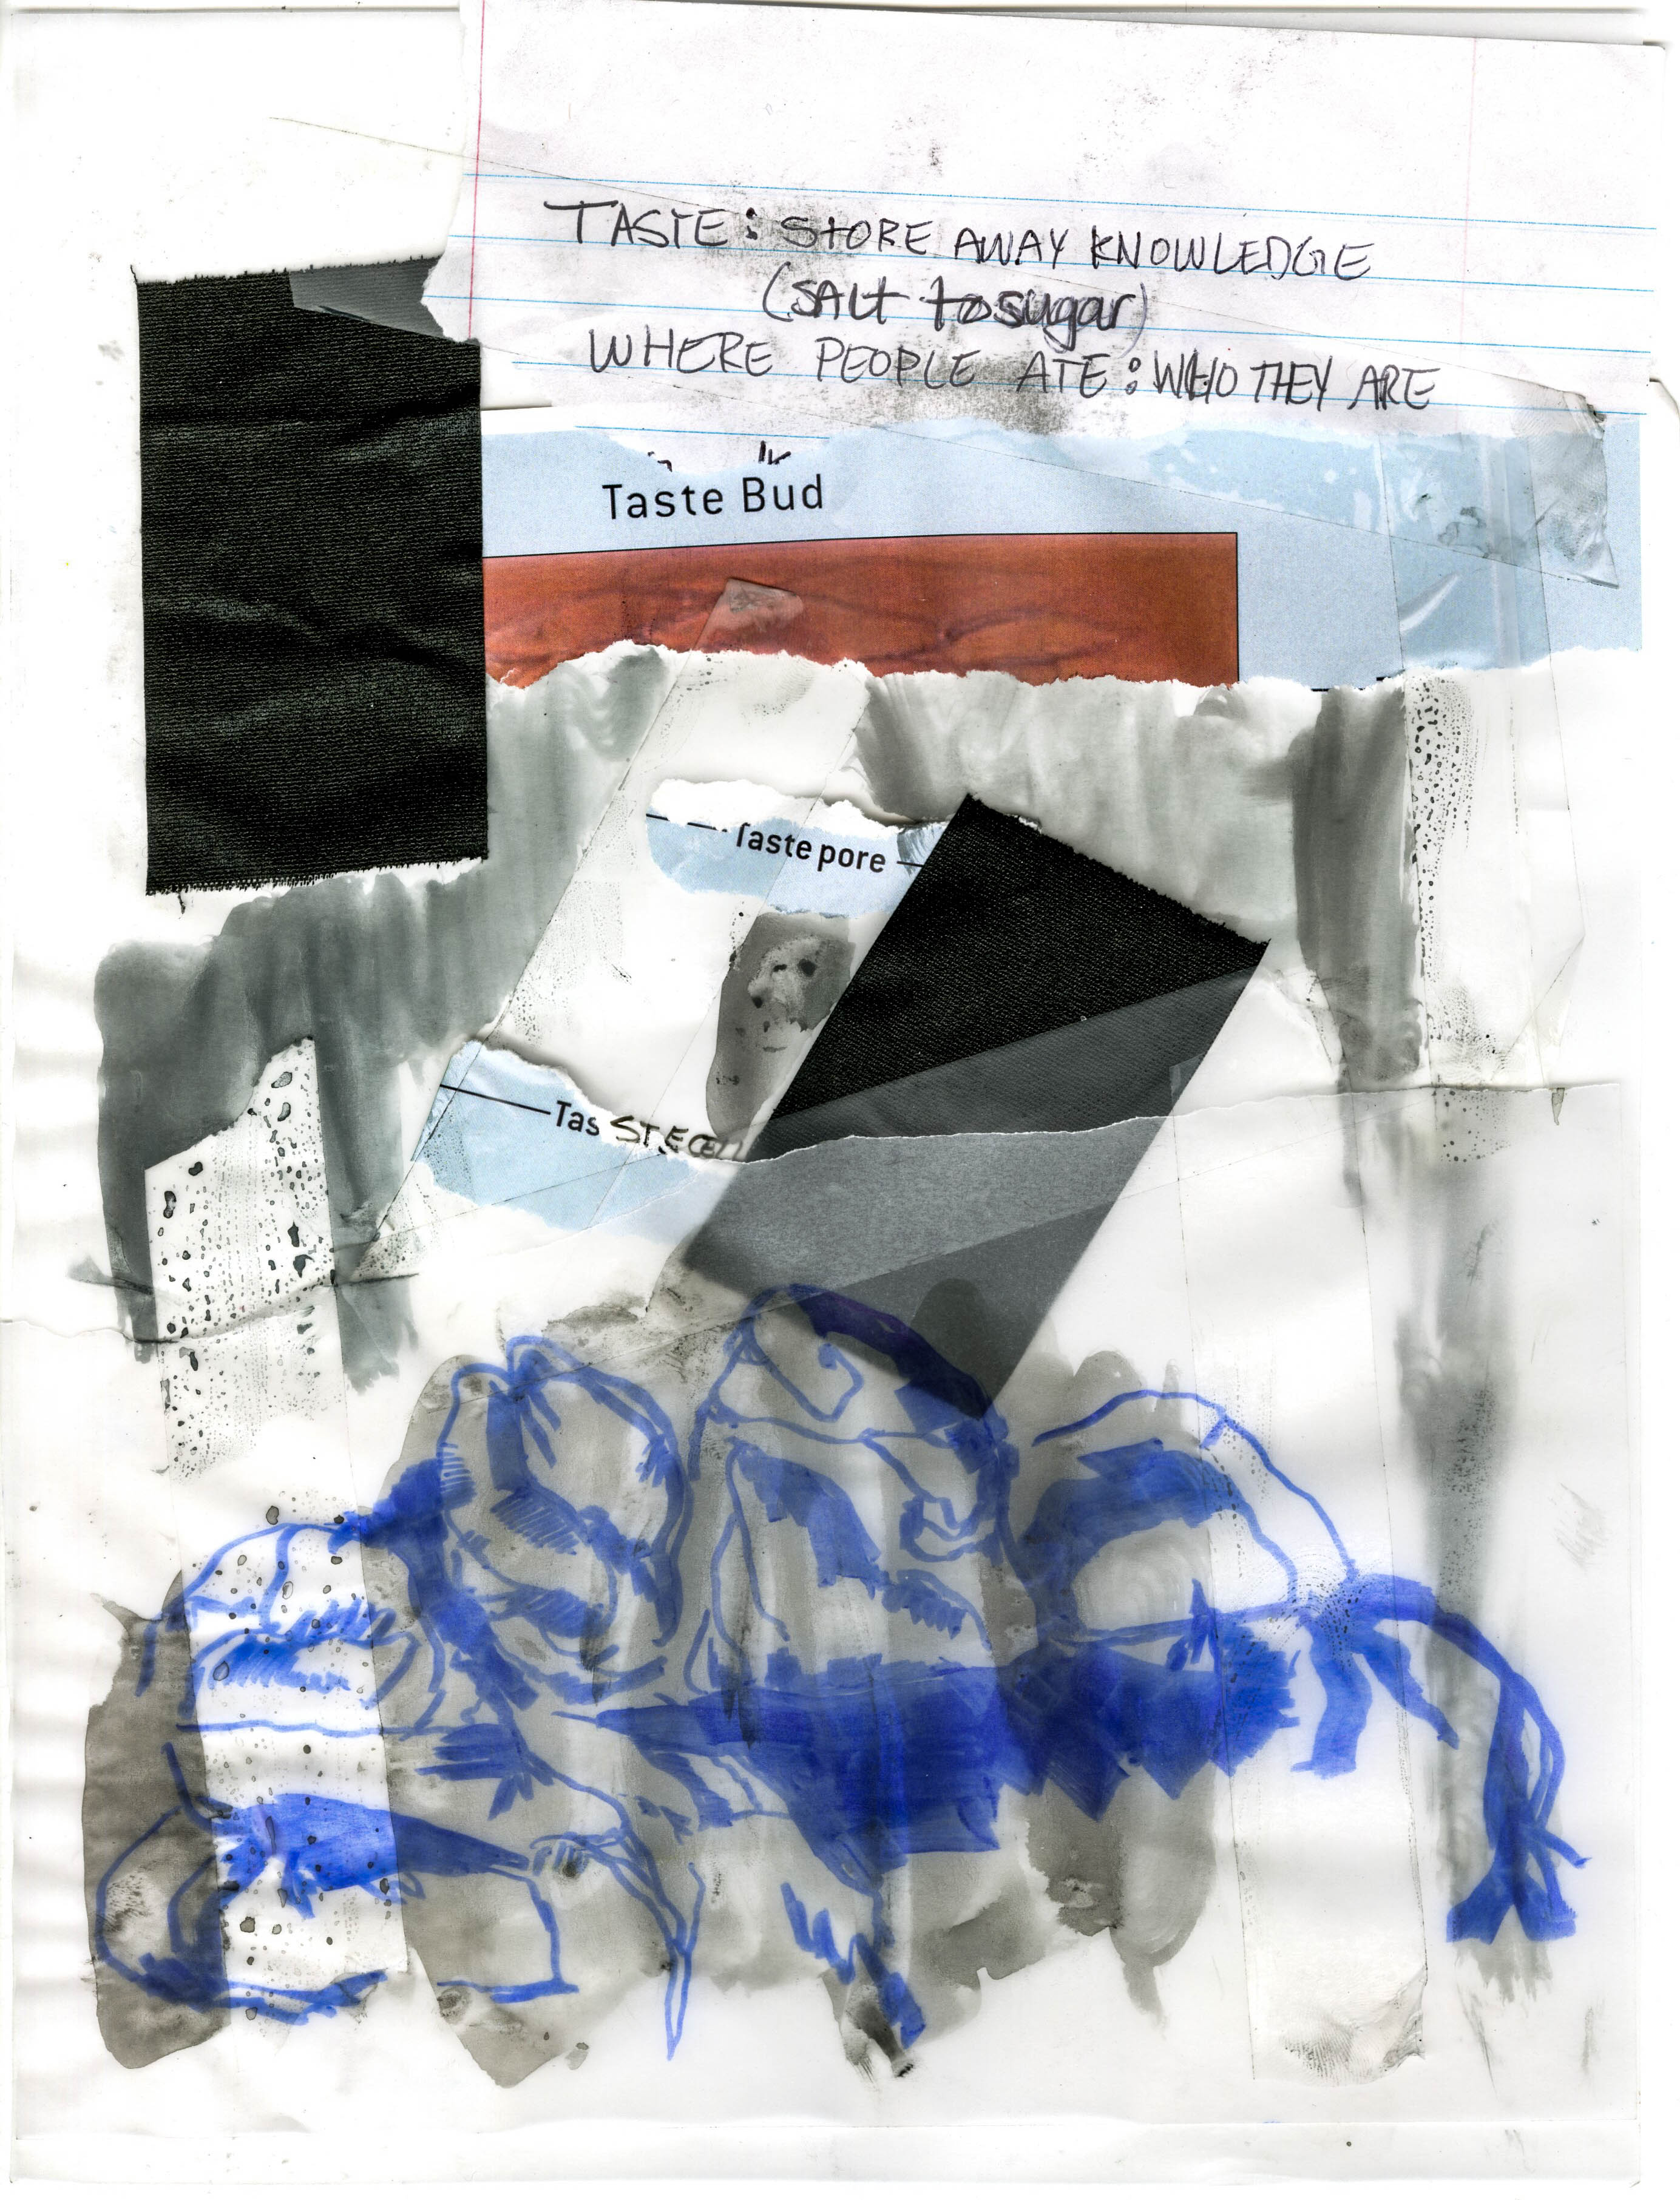 TASTE: STORE AWAY KNOWLEDGE
(SALt to sugar)
WHERE PEOPLE ATE: WHO THEY ARE
Taste Bud
Taste pore
Tas STE CELL